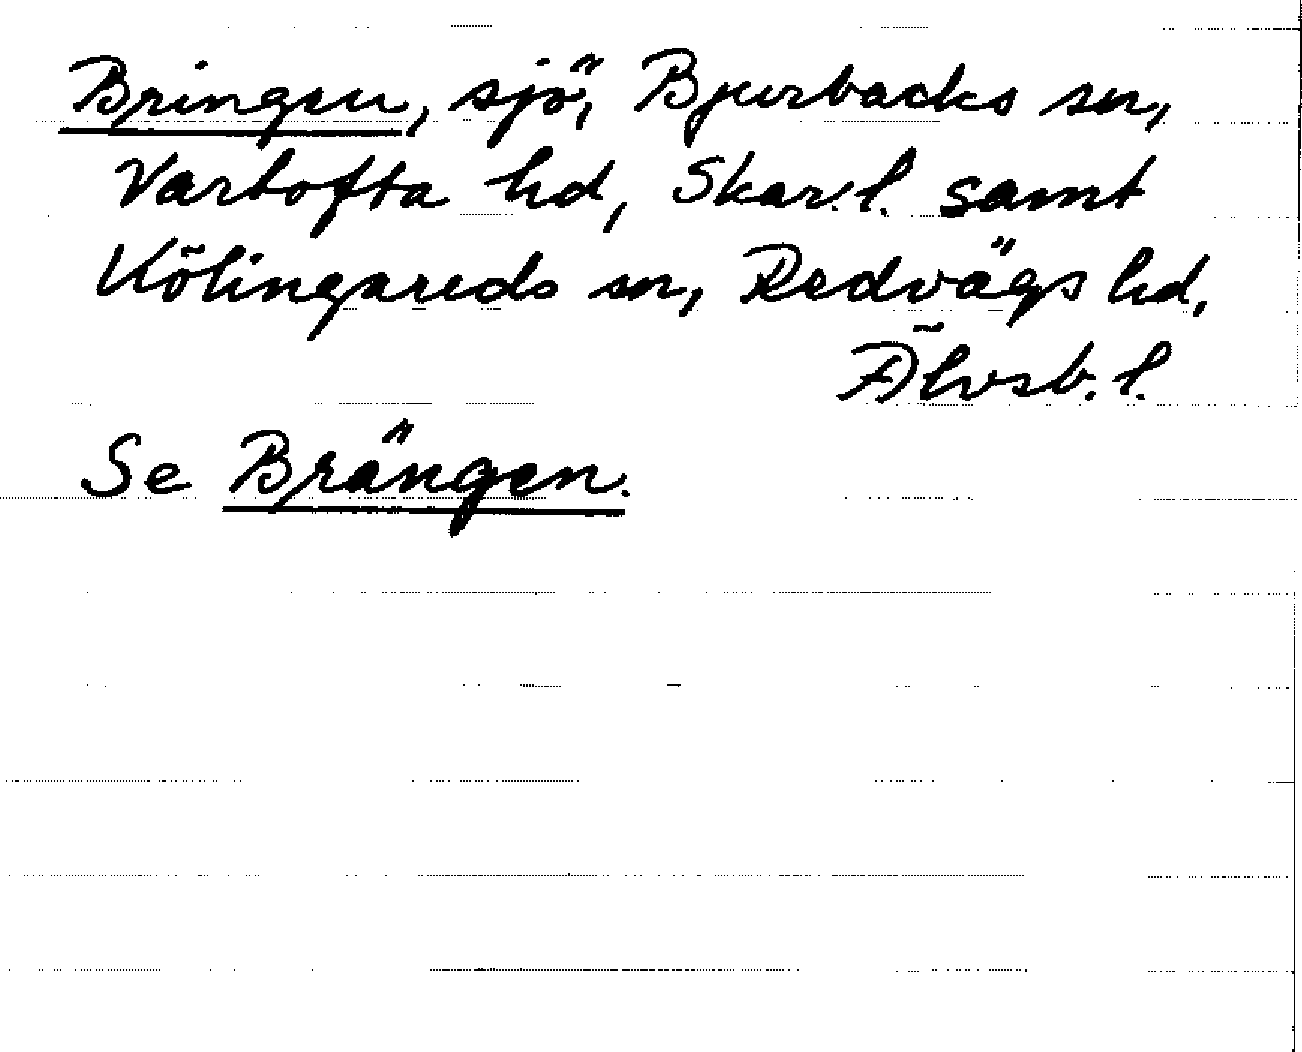 Bringen, sjö, Bjurbacks sn,
Vartofta hd, Skar. l. samt
Kölingareds sn, Redvägs hd,
Älvsb. l.
Se Brängen.